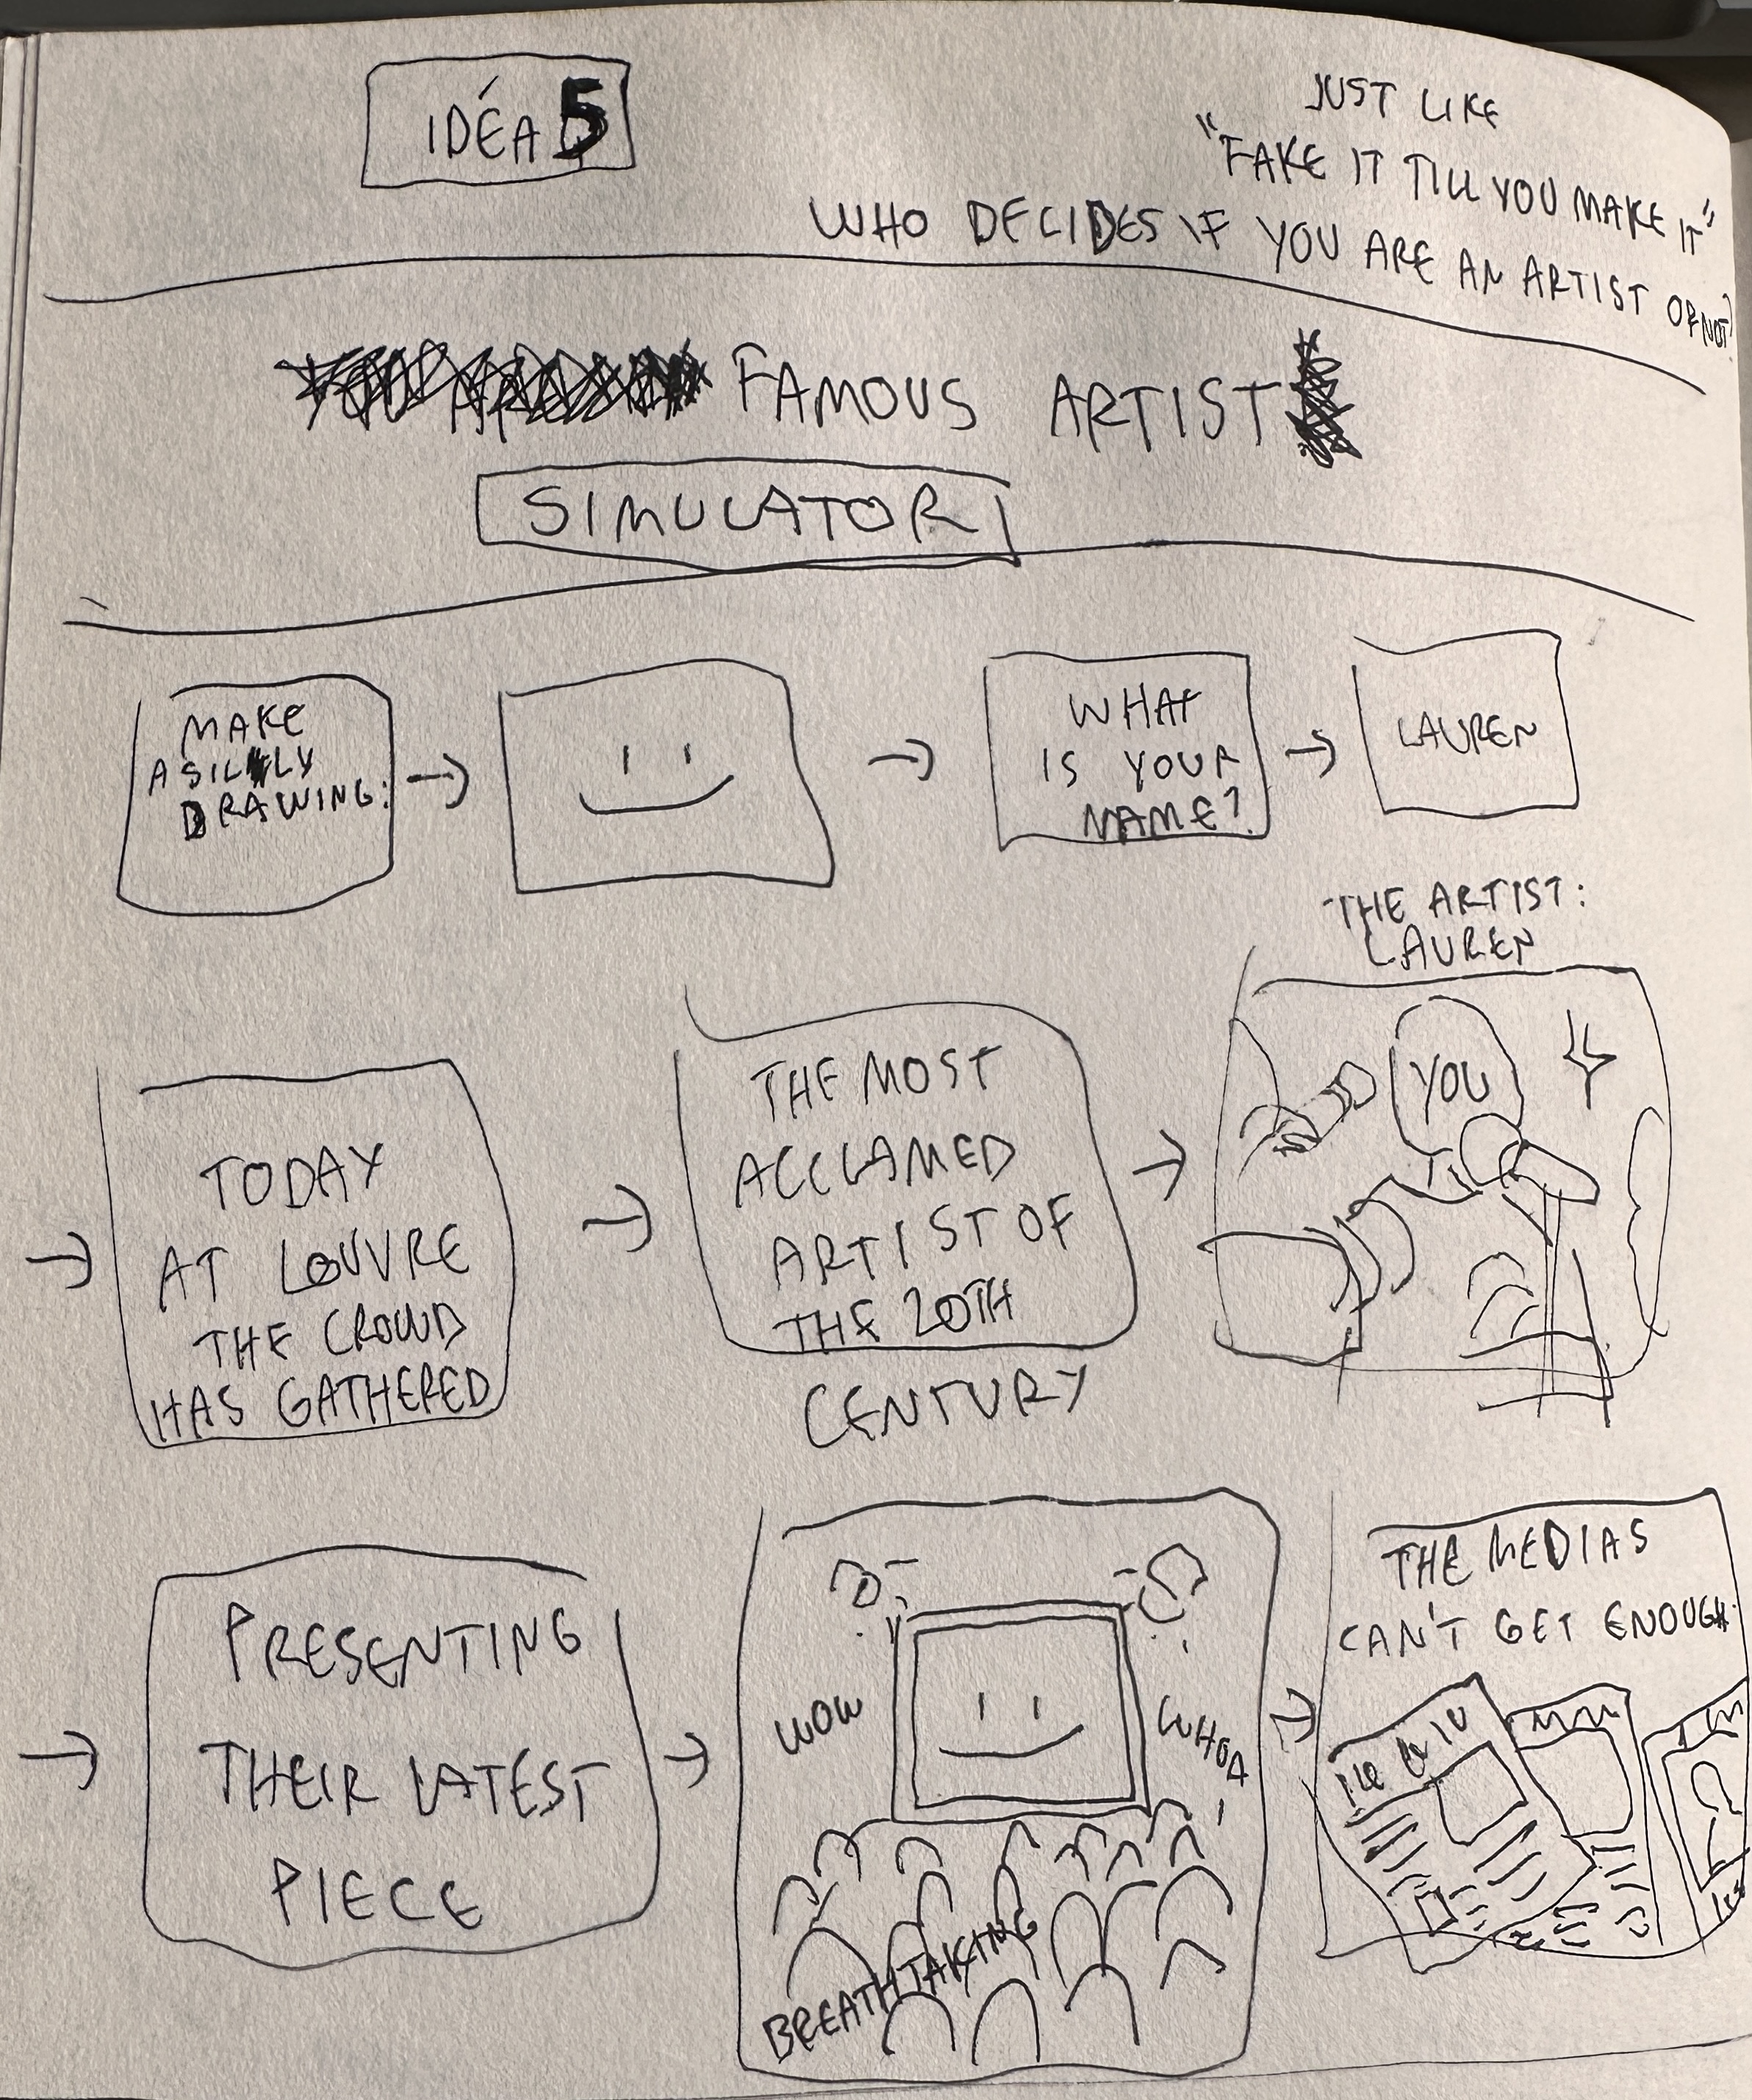 IDÉA 5
JUST LIKE
"FAKE IT TILL YOU MAKE IT"
WHO DECIDES IF YOU ARE AN ARTIST OR NOT?
FAMOUS ARTIST
SIMULATOR
MAKE
A SILLY
DRAWING:
WHAT
IS YOUR
NAME?
LAUREN
TODAY
AT LOUVRE
THE CROWD
HAS GATHERED
THE MOST
ACCLAMED
ARTIST OF
THE 20TH
CENTURY
THE ARTIST:
LAUREN
YOU
PRESENTING
THEIR LATEST
PIECE
WOW
WHOA
BREATHTAKING
THE MEDIAS
CAN'T GET ENOUGH